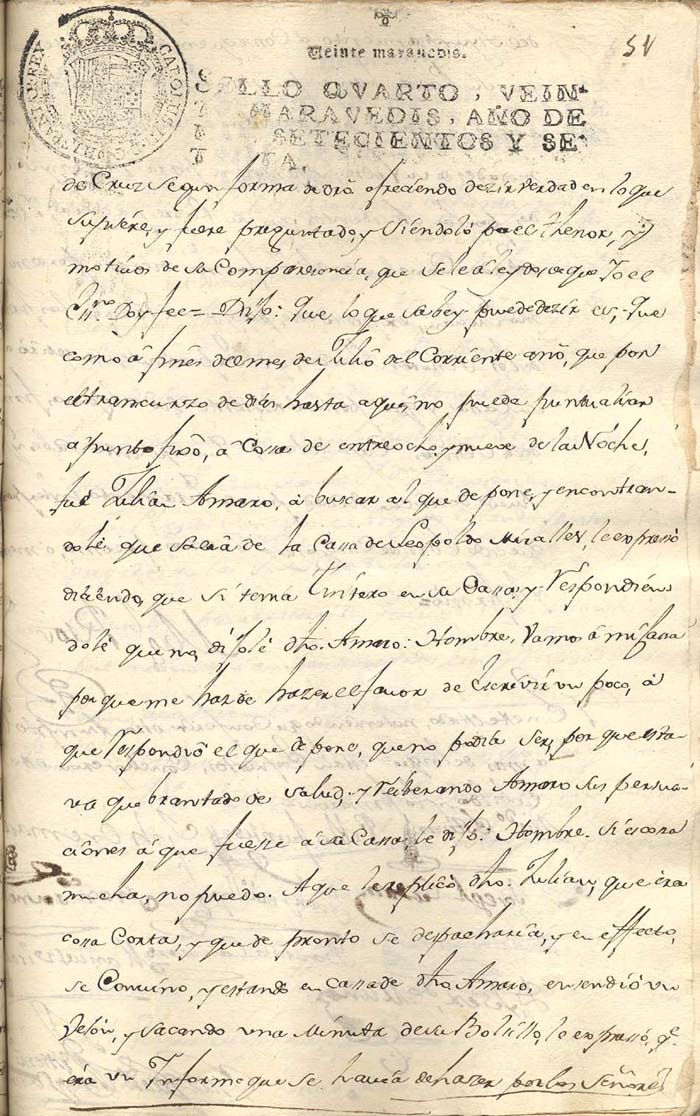 54
Veinte maravedis.
SELLO QVARTO, VEIN-
MARAVEDIS, AÑO DE
SETECIENTOS Y SE-
TA.
CAROLUS
HISPANIAR REX
de Cruz segun forma de dro ofreciendo dezir verdad en lo que
supiere, y fuere preguntado, y siendolo por el thenor, y
motivos de su Comparesencia, que se le â leydo, de que Yo el
Doy fee = Dijo: Que lo que sabe y puede dezir es, que
como â fines del mes de Julio del Corriente año, que por
el trancurzo de dias hasta aqui, no puede puntualizar
a punto fixo, â Cosa de entre ocho, y nueve de la Noche,
fue Julian Amaro, â buscar al que depone, y encontran-
dole que salia de la Cassa de Leopoldo Miralles, le expresó
diziendo, que si tenia Tintero en su Cassa, y Respondien
dole que no, dijole dho. Amaro: Hombre, Vamos â mi Cassa
porque me haz de hazer el favor de Escrevir un poco, â
que Respondió el que depone, que no podia ser, por que esta-
va quebrantado de salud; y Reiterando Amaro sus persua-
ciones â que fuesse â su Cassa, le dijo: Hombre. Si es cosa
mucha, no puedo. A que le replicó dho. Julian, que era
cosa Corta, y que de pronto se despacharia, y en effecto,
se Convino, y estando en Cassa de dho Amaro, ensendió un
Velón, y sacando una Minuta de su Bolsillo, le expressó, q.e
era un Informe que se havia de hazer por los Señores